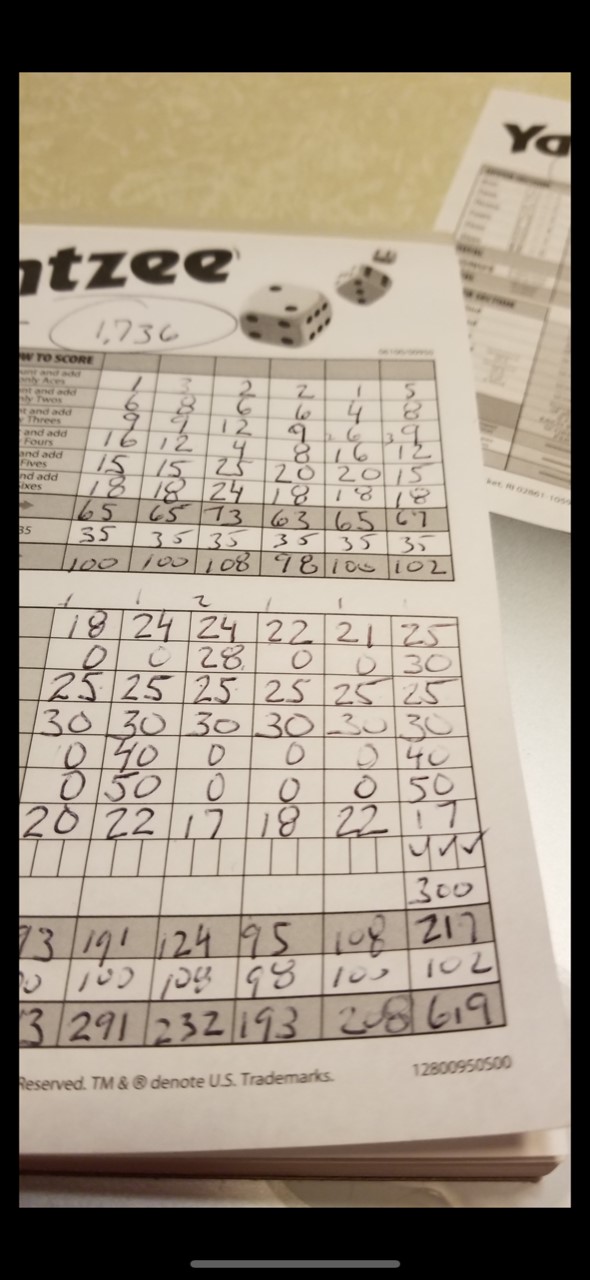 htzee
Ya
1,736
W TO SCORE
1 3 2 2 1 5
6 8 6 6 4 8
Threes 9 9 12 9 6 9
and add
Fours 16 12 4 8 16 12
and add
Fives 15 15 25 20 20 15
nd add
ixes 18 18 24 18 18 18
65 65 73 63 65 67
35 35 35 35 35 35 35
100 100 108 98 100 102
1 1 2 1 1
18 24 24 22 21 25
0 0 28 0 0 30
25 25 25 25 25 25
30 30 30 30 30 30
0 40 0 0 0 40
0 50 0 0 0 50
20 22 17 18 22 17
✓ ✓ ✓
300
93 191 124 95 108 217
0 100 108 98 100 102
3 291 232 193 208 619
Reserved. TM & ® denote U.S. Trademarks.
12800950500